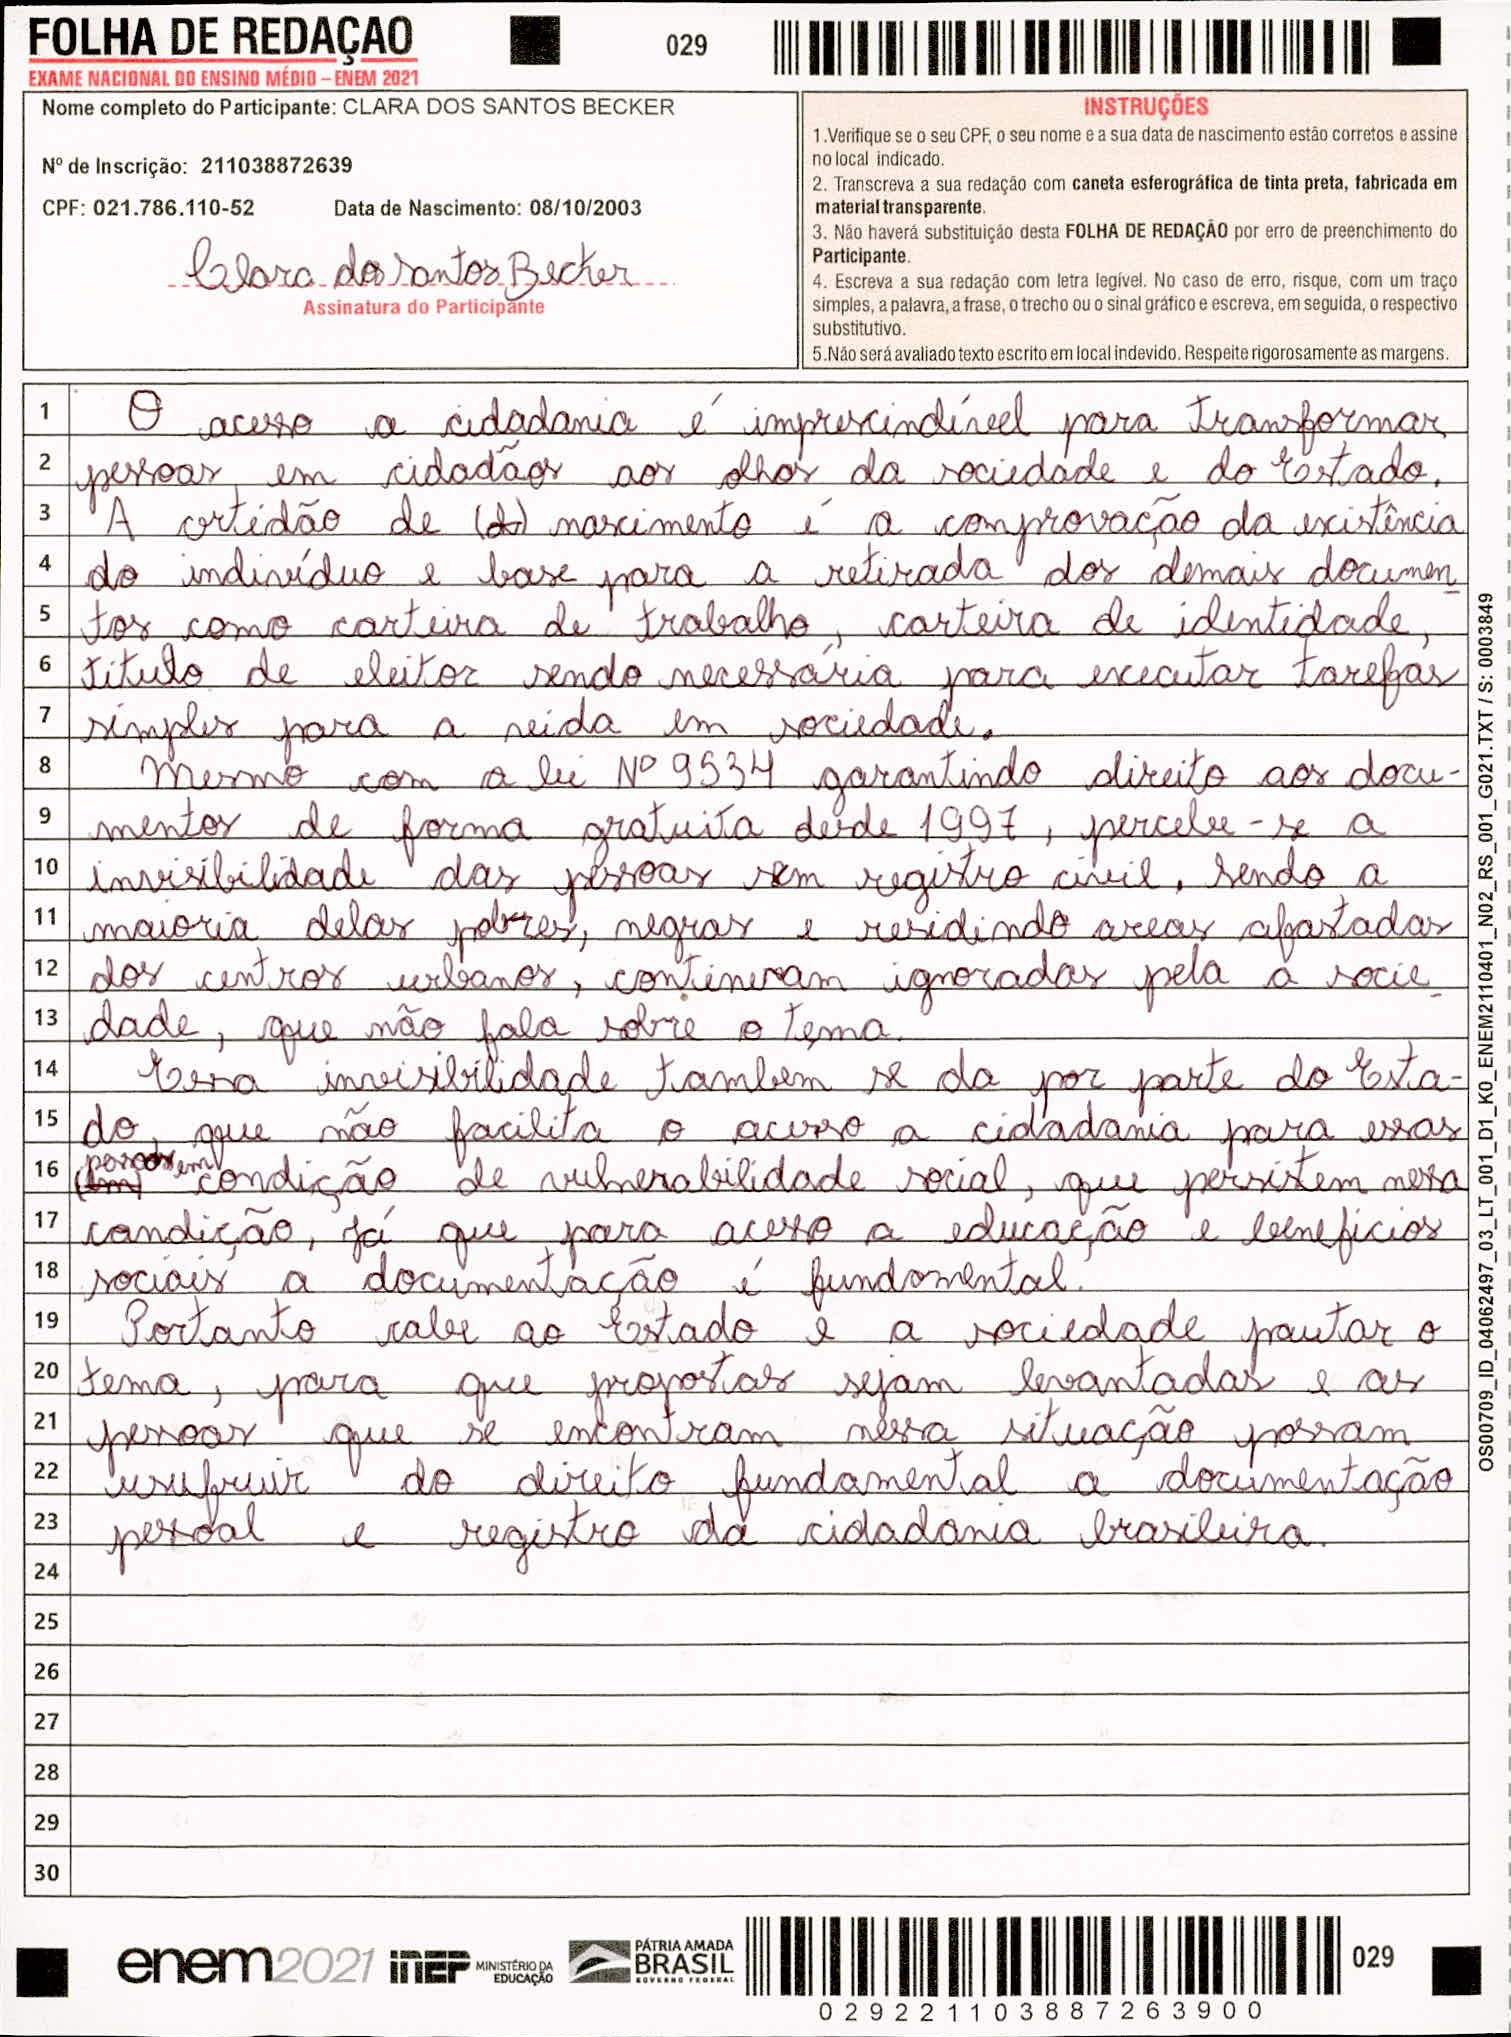 FOLHA DE REDAÇAO
EXAME NACIONAL DO ENSINO MÉDIO – ENEM 2021
029
Nome completo do Participante: CLARA DOS SANTOS BECKER
Nº de Inscrição: 211038872639
CPF: 021.786.110-52 Data de Nascimento: 08/10/2003
Clara dos Santos Becker
Assinatura do Participante
INSTRUÇÕES
1.Verifique se o seu CPF, o seu nome e a sua data de nascimento estão corretos e assine
no local indicado.
2. Transcreva a sua redação com caneta esferográfica de tinta preta, fabricada em
material transparente.
3. Não haverá substituição desta FOLHA DE REDAÇÃO por erro de preenchimento do
Participante.
4. Escreva a sua redação com letra legível. No caso de erro, risque, com um traço
simples, a palavra, a frase, o trecho ou o sinal gráfico e escreva, em seguida, o respectivo
substitutivo.
5.Não será avaliado texto escrito em local indevido. Respeite rigorosamente as margens.
1 O acesso a cidadania é imprescindível para transformar
2 pessoas em cidadãos aos olhos da sociedade e do Estado.
3 A certidão de (do) nascimento é a comprovação da existência
4 do indivíduo e base para a retirada dos demais documen
5 tos como carteira de trabalho, carteira de identidade,
6 titulo de eleitor sendo necessária para executar tarefas
7 simples para a vida em sociedade.
8 Mesmo com a lei Nº 9534 garantindo direito aos docu-
9 mentos de forma gratuita desde 1997, percebe-se a
10 invisibilidade das pessoas sem registro civil. Sendo a
11 maioria delas pobres, negras e residindo areas afastadas
12 dos centros urbanos, continuam ignoradas pela a socie
13 dade, que não fala sobre o tema.
14 Essa invisibilidade tambem se da por parte do Esta-
15 do, que não facilita o acesso a cidadania para essas
16 (em) pessoas em condição de vulnerabilidade social, que persistem nessa
17 condição, já que para acesso a educação e beneficios
18 sociais a documentação é fundamental.
19 Portanto cabe ao Estado e a sociedade pautar o
20 tema, para que propostas sejam levantadas e as
21 pessoas que se encontram nessa situação possam
22 usufruir do direito fundamental a documentação
23 pessoal e registro da cidadania brasileira.
24
25
26
27
28
29
30
OS00709_ID_04062497_03_LT_001_D1_K0_ENEM2110401_N02_RS_001_G021.TXT / S: 0003849
enem2021 inep MINISTÉRIO DA EDUCAÇÃO PÁTRIA AMADA BRASIL GOVERNO FEDERAL
029
029221103887263900